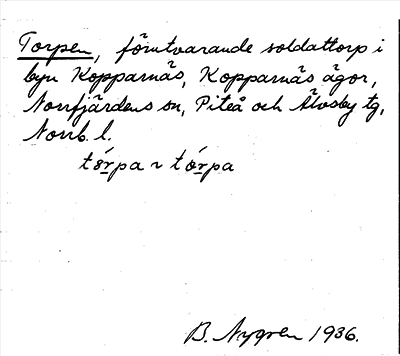 Torpen, förutvarande soldattorp i
byn Kopparnäs, Kopparnäs ägor,
Norrfjärdens sn, Piteå och Älvsby tg,
Norrb. l.
tórpa ~ tórpa
B. Nygren 1936.